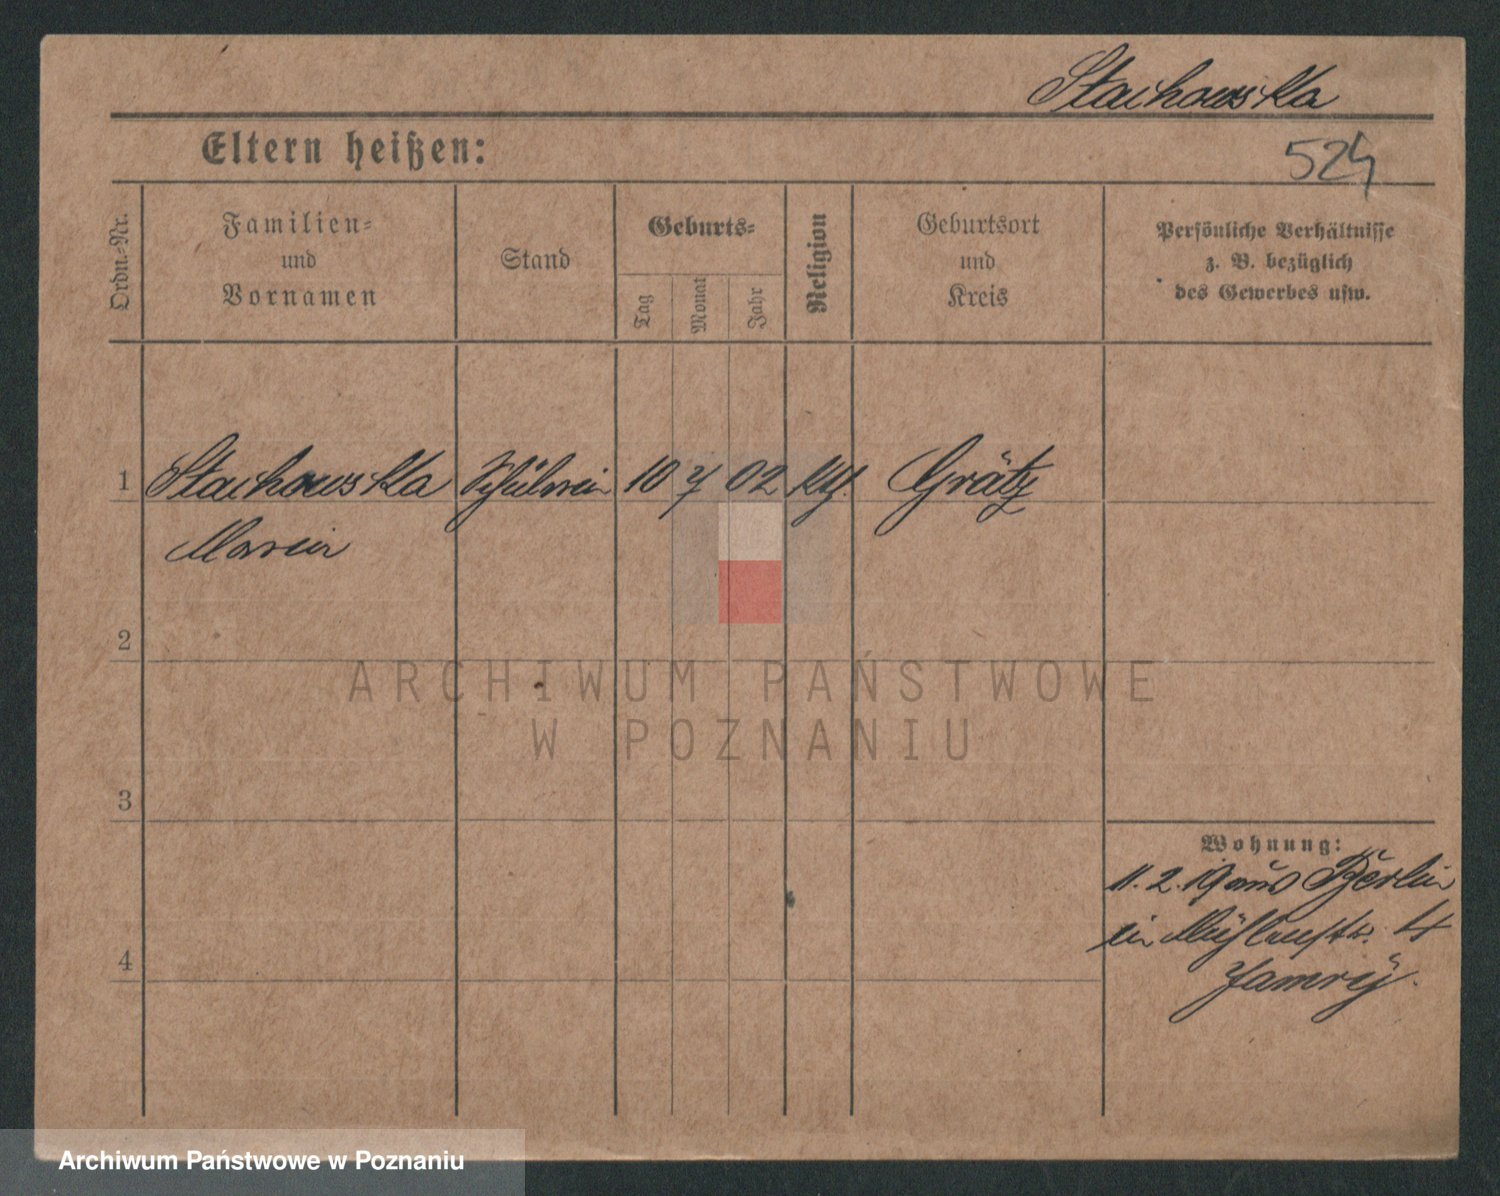 Stachowska
Eltern heißen:
524
Ordn.-Nr.
Familien-
und
Vornamen
Stand
Geburts-
Tag
Monat
Jahr
Religion
Geburtsort
und
Kreis
Persönliche Verhältnisse
z. B. bezüglich
des Gewerbes usw.
1 Stachowska Schülerin 10 7 02 kth. Grätz
Maria
2
3
4
Wohnung:
11. 2. 19 aus Berlin
in Mühlenstr. 4
ARCHIWUM PAŃSTWOWE
W POZNANIU
Archiwum Państwowe w Poznaniu